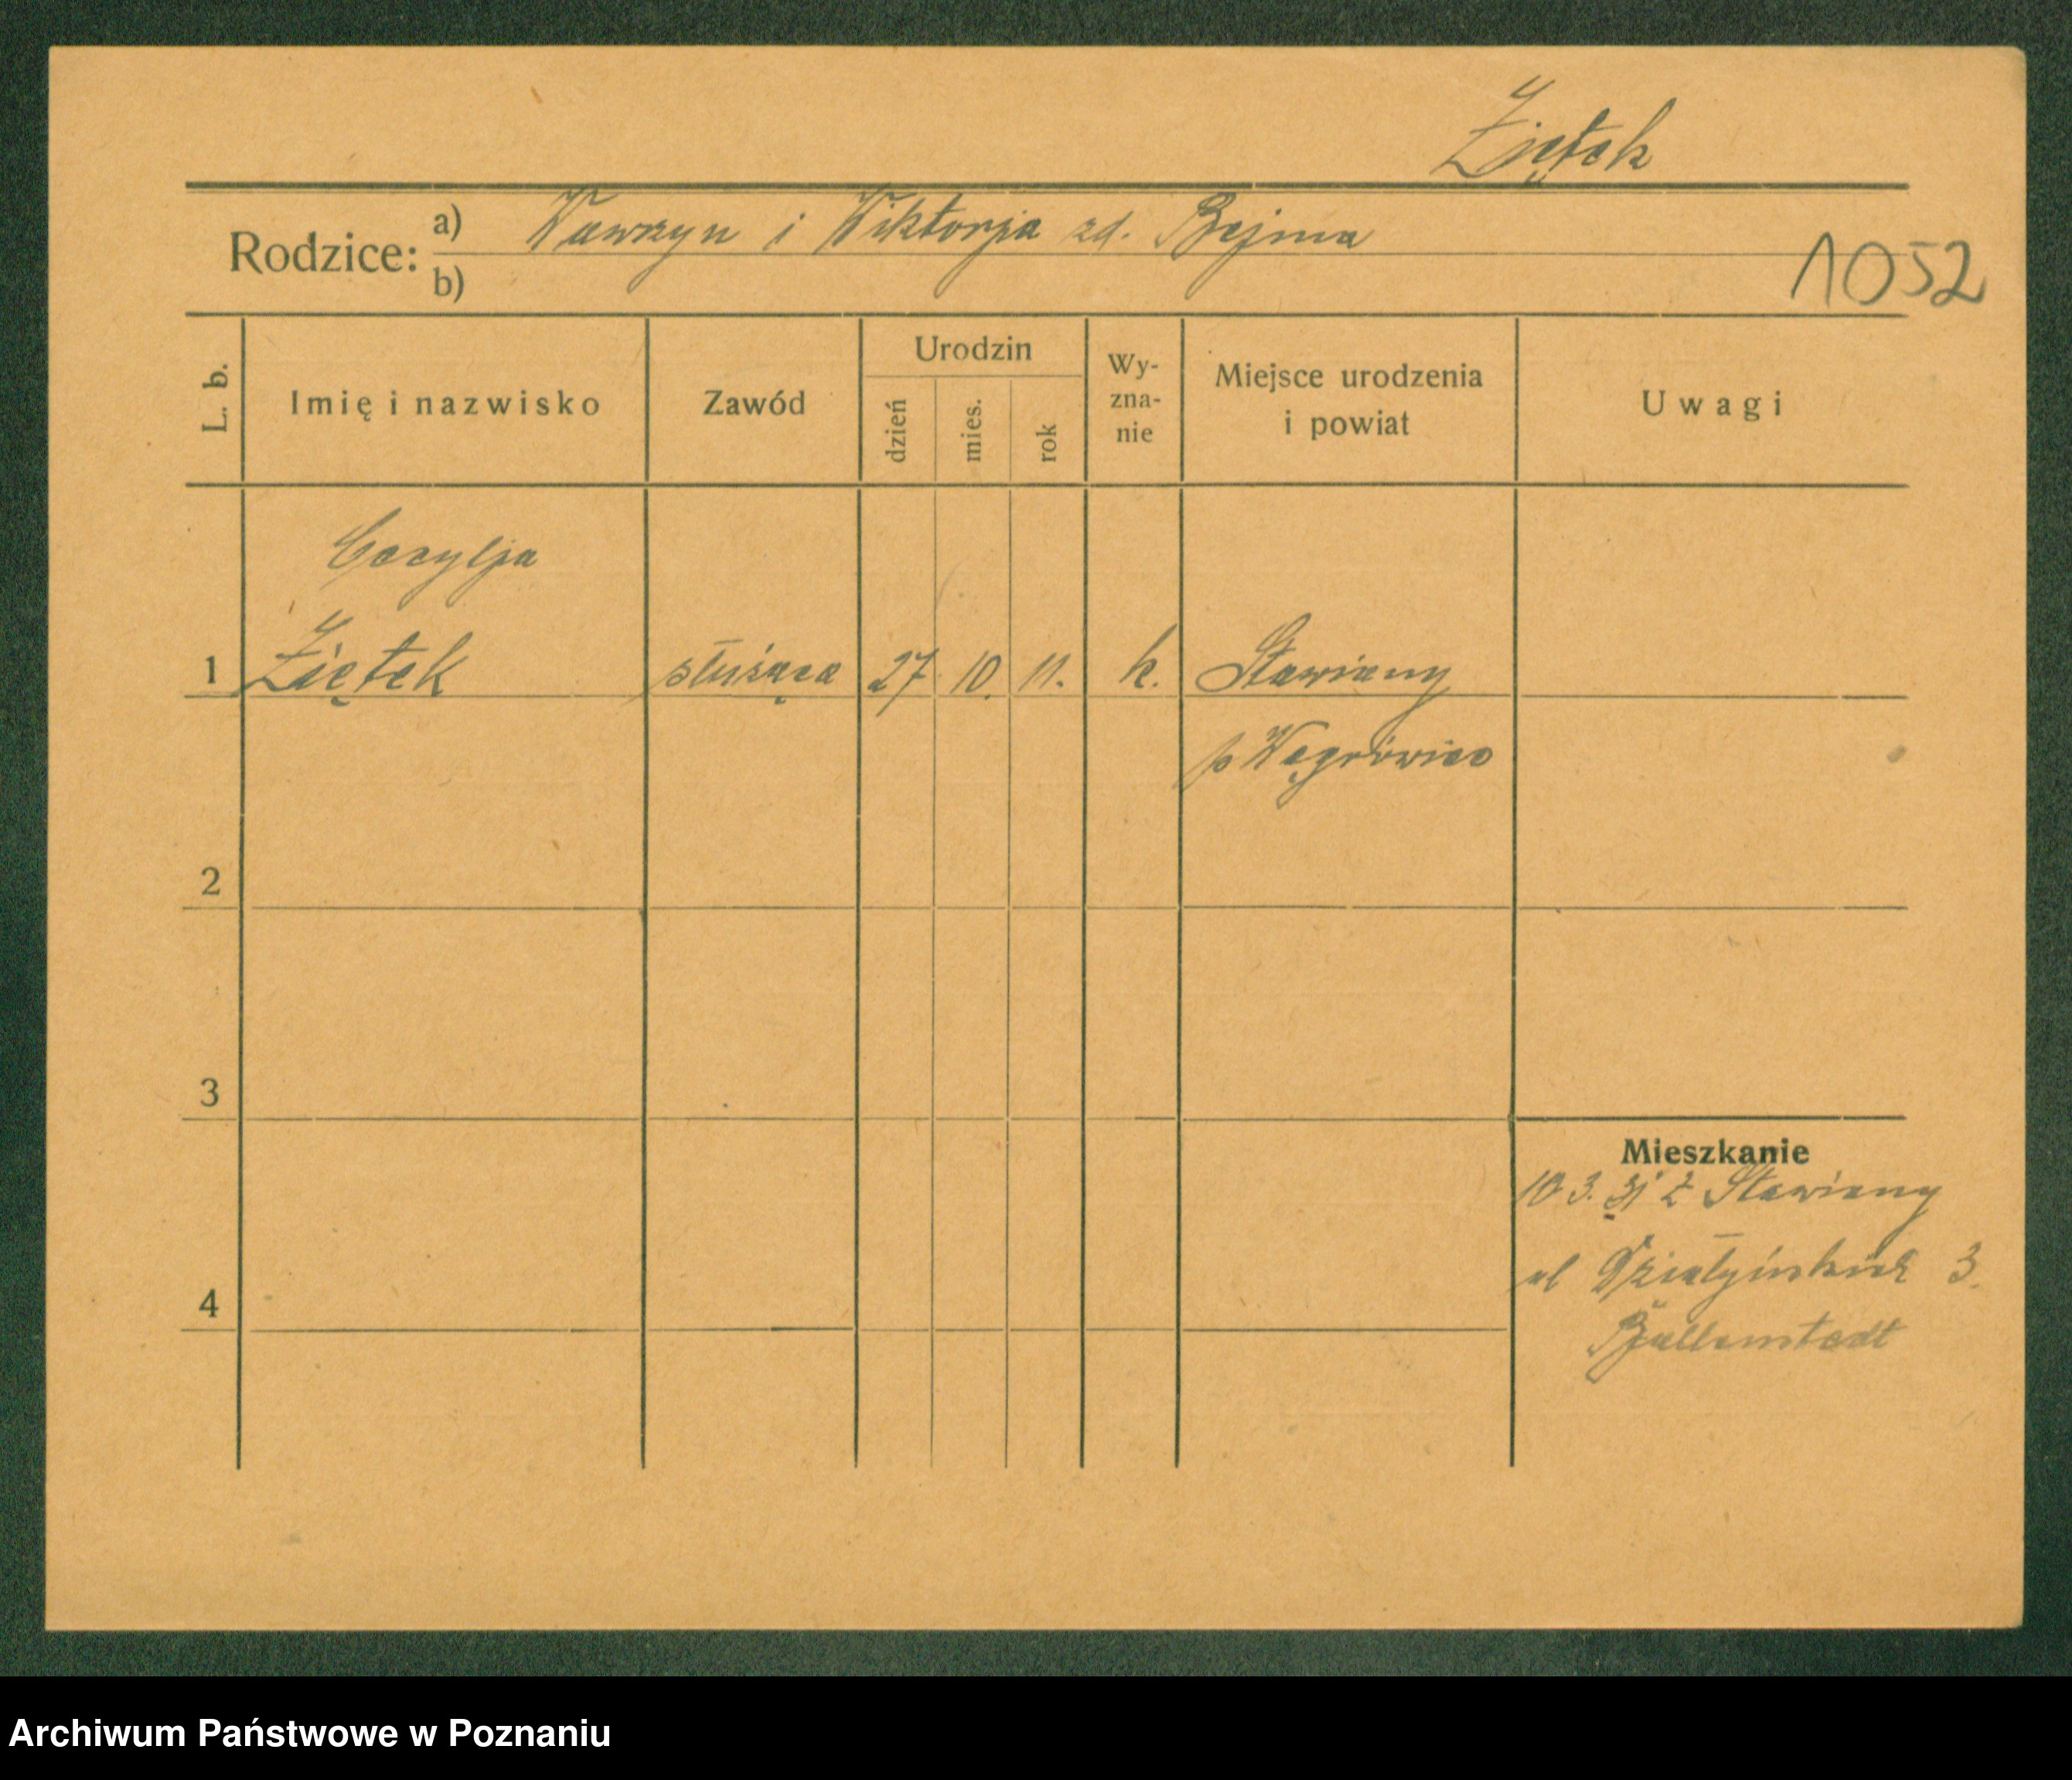 Ziętek
Rodzice: a) Wawrzyn i Wiktorja zd. Bejma
b)
1052
L. b. Imię i nazwisko Zawód Urodzin dzień mies. rok Wy-zna-nie Miejsce urodzenia i powiat Uwagi
Cecylja
1 Ziętek służąca 27 10. 11. k. Stawiany
p Wągrówiec
2
3
Mieszkanie
10 3. 31 z Stawiany
ul Działyńskich 3.
4
Ballenstedt
Archiwum Państwowe w Poznaniu